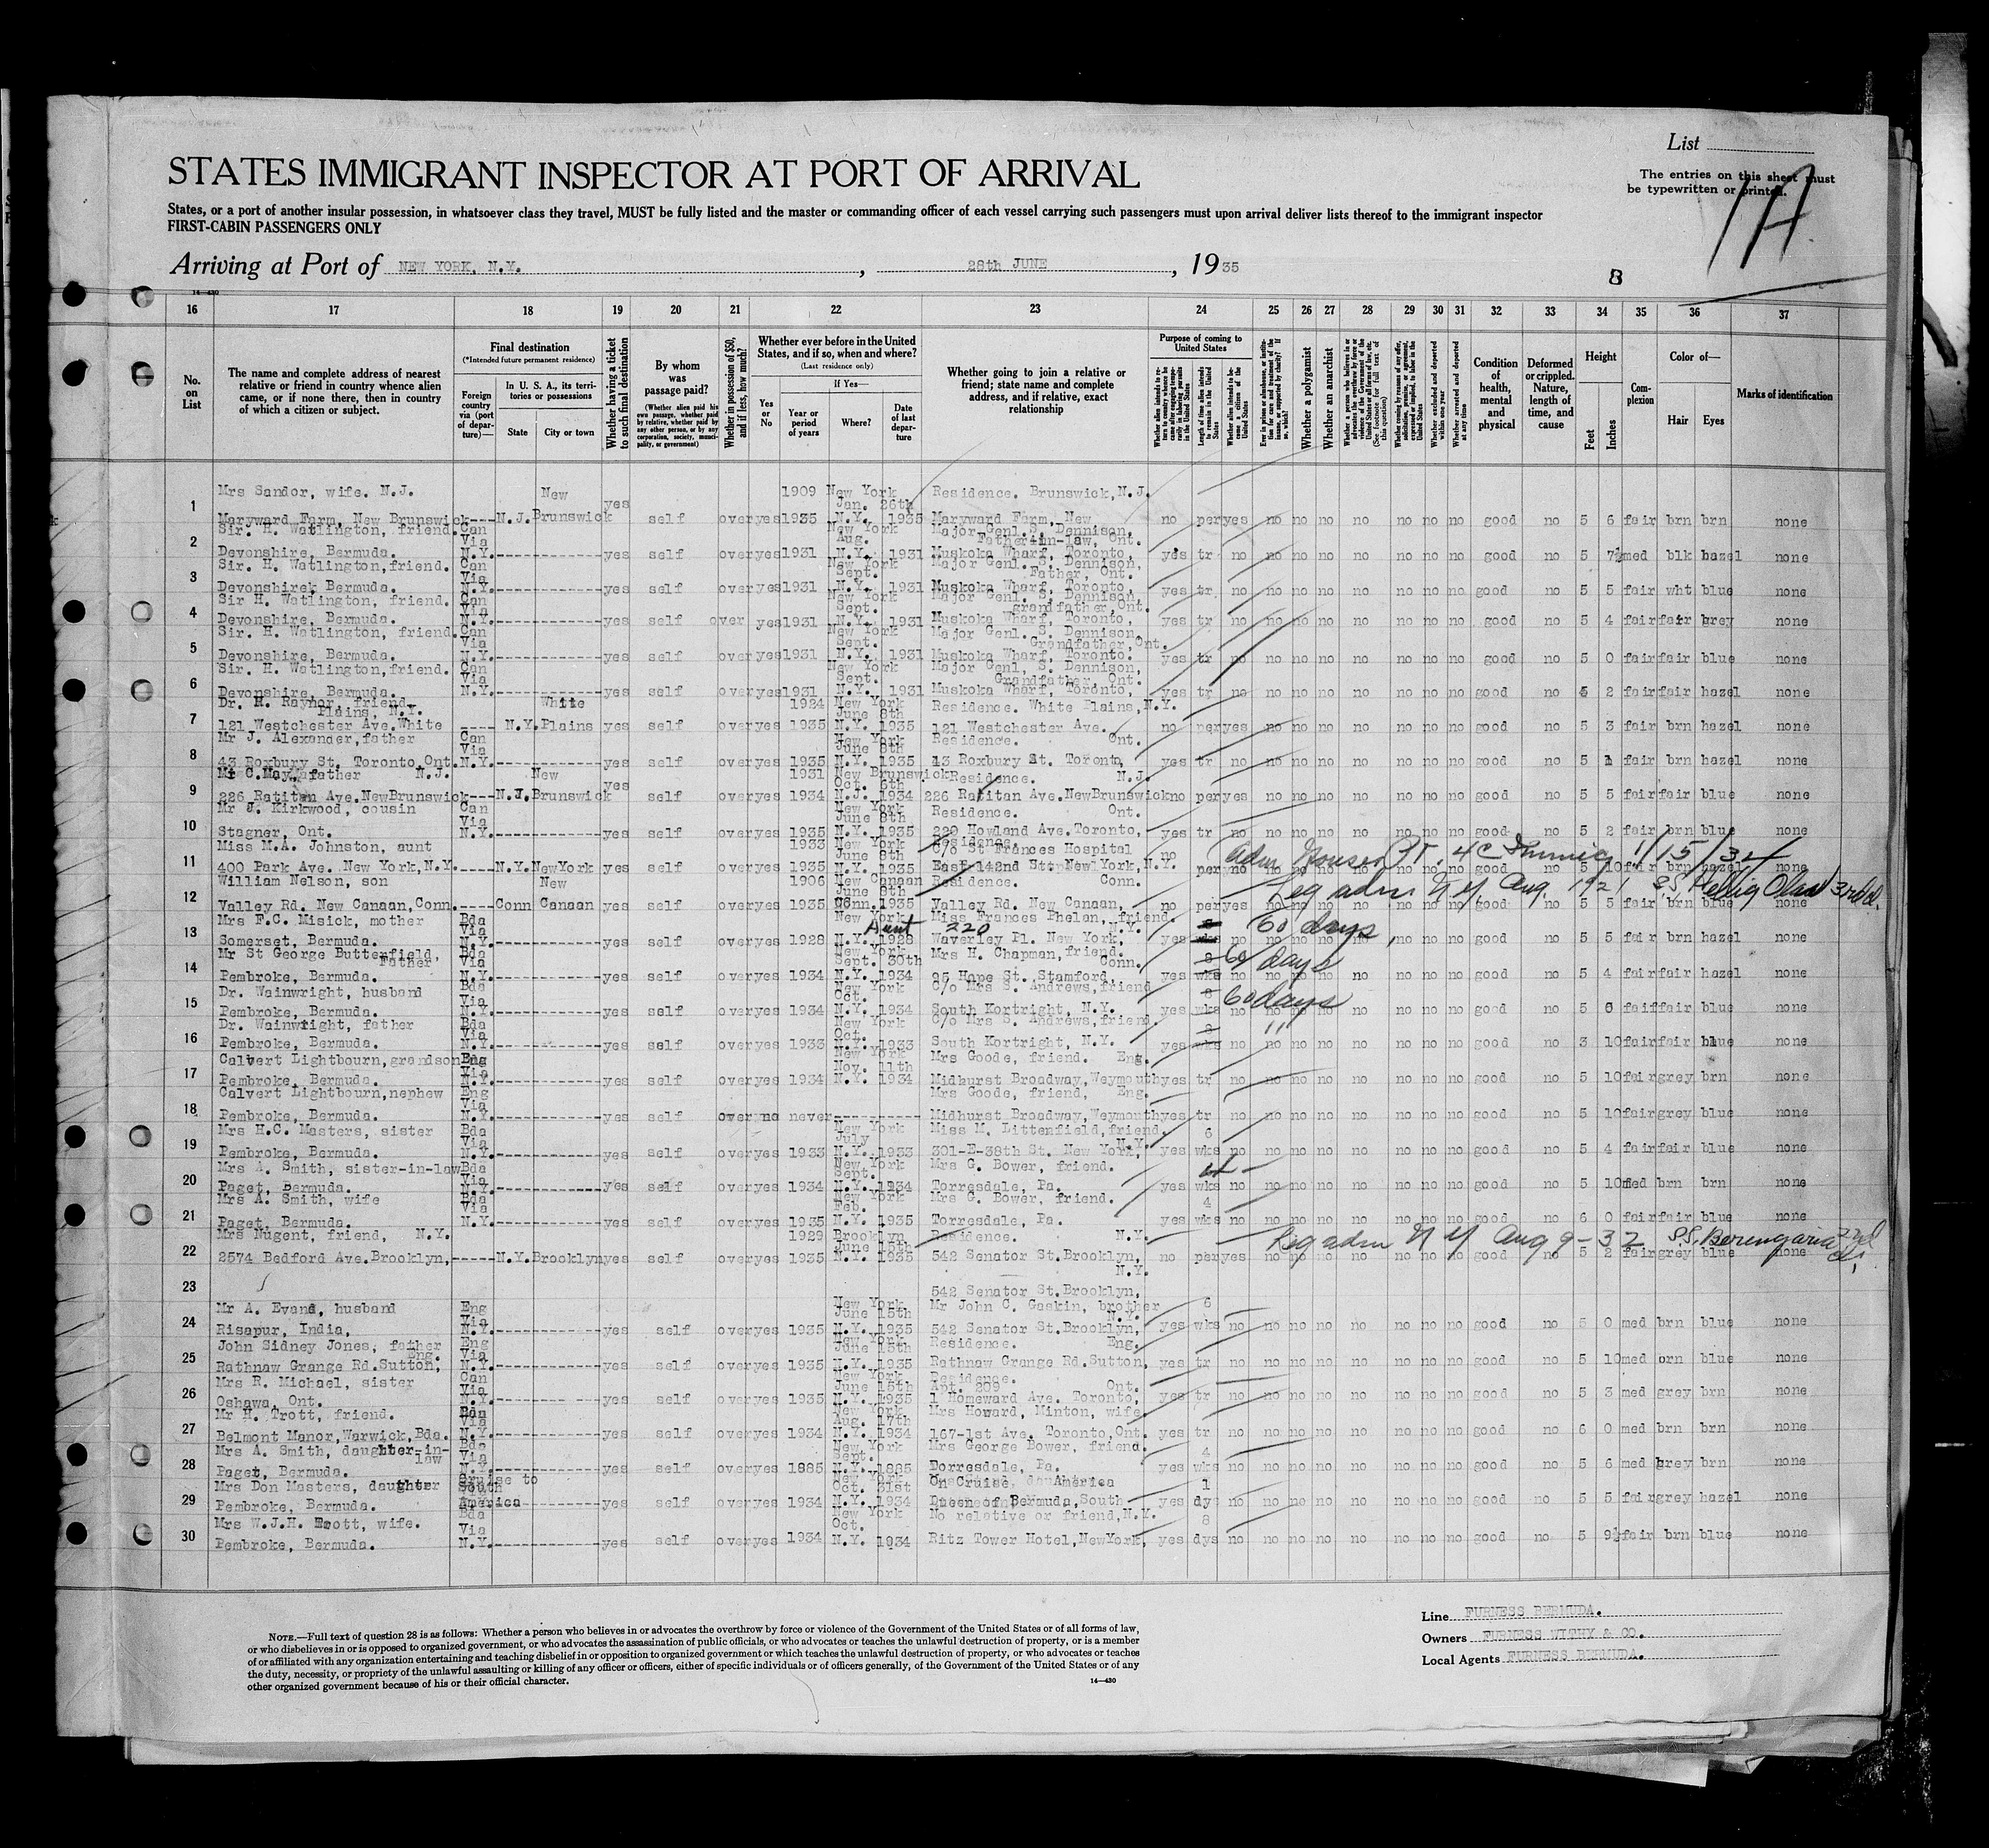 List
The entries on this sheet must
be typewritten or printed.
1A
STATES IMMIGRANT INSPECTOR AT PORT OF ARRIVAL
States, or a port of another insular possession, in whatsoever class they travel, MUST be fully listed and the master or commanding officer of each vessel carrying such passengers must upon arrival deliver lists thereof to the immigrant inspector
FIRST-CABIN PASSENGERS ONLY
Arriving at Port of NEW YORK, N.Y. , 28th JUNE , 1935
8
14—430
16 17 18 19 20 21 22 23 24 25 26 27 28 29 30 31 32 33 34 35 36 37
No. on List
The name and complete address of nearest relative or friend in country whence alien came, or if none there, then in country of which a citizen or subject.
Final destination
(*Intended future permanent residence)
Foreign country via (port of departure)—
In U. S. A., its territories or possessions
State City or town
Whether having a ticket to such final destination
By whom was passage paid?
(Whether alien paid his own passage, whether paid by relative, whether paid by any other person, or by any corporation, society, municipality, or government)
Whether in possession of $50, and if less, how much?
Whether ever before in the United States, and if so, when and where?
(Last residence only)
Yes or No
If Yes—
Year or period of years
Where?
Date of last departure
Whether going to join a relative or friend; state name and complete address, and if relative, exact relationship
Purpose of coming to United States
Length of time alien intends to remain in the United States
Whether alien intends to become a citizen of the United States
Whether a polygamist
Whether an anarchist
Whether excluded and deported within one year
Whether arrested and deported at any time
Condition of health, mental and physical
Deformed or crippled. Nature, length of time, and cause
Height
Feet Inches
Complexion
Color of—
Hair Eyes
Marks of identification
1 Mrs Sandor, wife. N.J. New 1909 New York Residence. Brunswick, N.J.
Jan. 26th
Maryward Farm, New Brunswick---N.J. Brunswick yes self over yes 1935 N.Y. 1935 Maryward Farm, New no per yes no no no no no no no no good no 5 6 fair brn brn none
2 Sir. H. Watlington, friend. Can Via New York Aug. Major Genl. S. Dennison, Father-in-law, Ont.
Devonshire, Bermuda. N.Y. yes self over yes 1931 N.Y. 1931 Muskoka Wharf, Toronto, yes tr no no no no no no no no no good no 5 7½ med blk hazel none
3 Sir. H. Watlington, friend. Can Via New York Sept. Major Genl. S. Dennison, Father, Ont.
Devonshire Bermuda. N.Y. yes self over yes 1931 N.Y. 1931 Muskoka Wharf, Toronto, yes tr no no no no no no no no no good no 5 5 fair wht blue none
4 Sir H. Watlington, friend. Can Via New York Sept. Major Genl. S. Dennison, grandfather, Ont.
Devonshire, Bermuda. N.Y. yes self over yes 1931 N.Y. 1931 Muskoka Wharf, Toronto, yes tr no no no no no no no no no good no 5 4 fair fair grey none
5 Sir. H. Watlington, friend. Can Via New York Sept. Major Genl. S. Dennison, Grandfather, Ont.
Devonshire, Bermuda. N.Y. yes self over yes 1931 N.Y. 1931 Muskoka Wharf, Toronto. yes tr no no no no no no no no no good no 5 0 fair fair blue none
6 Sir. H. Watlington, friend. Can Via New York Sept. Major Genl, S. Dennison, Grandfather, Ont.
Devonshire, Bermuda. N.Y. yes self over yes 1931 N.Y. 1931 Muskoka Wharf, Toronto, yes tr no no no no no no no no no good no 5 2 fair fair hazel none
7 Dr. H. Raynor, friend. Plains, N.Y. White 1924 New York June 8th Residence. White Plains, N.Y.
121 Westchester Ave. White ---- N.Y. Plains yes self over yes 1935 N.Y. 1935 121 Westchester Ave. no per yes no no no no no no no no good no 5 3 fair brn hazel none
8 Mr J. Alexander, father Can Via New York June 8th Residence. Ont.
43 Roxbury St. Toronto, Ont. N.Y. yes self over yes 1935 N.Y. 1935 43 Roxbury St. Toronto, yes tr no no no no no no no no no good no 5 1 fair brn hazel none
9 Mr C. May, father N.J. New 1931 New Brunswick Oct. 6th Residence. N.J.
226 Raritan Ave. New Brunswick---N.J. Brunswick yes self over yes 1934 N.J. 1934 226 Raritan Ave. New Brunswick no per yes no no no no no no no no good no 5 5 fair fair blue none
10 Mr J. Kirkwood, cousin Can Via New York June 8th Residence. Ont.
Stagner, Ont. N.Y. yes self over yes 1935 N.Y. 1935 220 Howland Ave. Toronto, yes tr no no no no no no no no no good no 5 2 fair brn blue none
11 Miss M.A. Johnston, aunt 1933 New York June 8th Residence. c/o St Frances Hospital
400 Park Ave. New York, N.Y. ---- N.Y. New York yes self over yes 1935 N.Y. 1935 East 142nd St. New York, N.Y. no per yes no no no no no no no no good no 5 10 fair brn hazel none
1/15/34
12 William Nelson, son New 1906 New Canaan June 8th Residence. Conn.
Valley Rd. New Canaan, Conn. ---- Conn Canaan yes self over yes 1935 Conn. 1935 Valley Rd. New Canaan, no per yes no no no no no no no no good no 5 5 fair brn blue none
Leg adm N.Y. Aug. 1921 SS. Hellig Olav 3rd cl.
13 Mrs F.C. Misick, mother Bda Via New York Miss Frances Phelan, friend. N.Y. Aunt 220 60 days
Somerset, Bermuda. N.Y. yes self over yes 1928 N.Y. 1928 Waverley Pl. New York, yes wks no no no no no no no no no good no 5 5 fair brn hazel none
14 Mr St George Butterfield, Father Bda Via New York Sept. 30th Mrs H. Chapman, friend. Conn. 8 60 days
Pembroke, Bermuda. N.Y. yes self over yes 1934 N.Y. 1934 95 Hope St. Stamford, yes wks no no no no no no no no no good no 5 4 fair fair hazel none
15 Dr. Wainwright, husband Bda Via New York Oct. c/o Mrs S. Andrews, friend 8 60 days
Pembroke, Bermuda. N.Y. yes self over yes 1934 N.Y. 1934 South Kortright, N.Y. yes wks no no no no no no no no no good no 5 6 fair fair blue none
16 Dr. Wainwright, father Bda Via New York Oct. c/o Mrs S. Andrews, friend. 8 "
Pembroke, Bermuda. N.Y. yes self over yes 1933 N.Y. 1933 South Kortright, N.Y. yes wks no no no no no no no no no good no 3 10 fair fair blue none
17 Calvert Lightbourn, grandson Eng Via New York Nov. 11th Mrs Goode, friend. Eng.
Pembroke, Bermuda. N.Y. yes self over yes 1934 N.Y. 1934 Midhurst Broadway, Weymouth yes tr no no no no no no no no no good no 5 10 fair grey brn none
18 Calvert Lightbourn, nephew Eng Via Mrs Goode, friend, Eng.
Pembroke, Bermuda. N.Y. yes self over no never Midhurst Broadway, Weymouth yes tr no no no no no no no no no good no 5 10 fair grey blue none
19 Mrs H.C. Masters, sister Bda Via New York July Miss M. Littenfield, friend. N.Y. 6
Pembroke, Bermuda. N.Y. yes self over yes 1933 N.Y. 1933 301-E-38th St. New York, yes wks no no no no no no no no no good no 5 4 fair fair blue none
20 Mrs A. Smith, sister-in-law Bda Via New York Sept. Mrs G. Bower, friend. 4
Paget, Bermuda. N.Y. yes self over yes 1934 N.Y. 1934 Torresdale, Pa. yes wks no no no no no no no no no good no 5 10 med brn brn none
21 Mrs A. Smith, wife Bda Via New York Feb. Mrs G. Bower, friend. 4
Paget, Bermuda. N.Y. yes self over yes 1935 N.Y. 1935 Torresdale, Pa. yes wks no no no no no no no no no good no 6 0 fair fair blue none
22 Mrs Nugent, friend, N.Y. 1929 Brooklyn June 15th Residence. N.Y.
Leg adm N Y Aug 9-32 SS. Berengaria 2nd cl.
2574 Bedford Ave. Brooklyn, ----- N.Y. Brooklyn yes self over yes 1935 N.Y. 1935 542 Senator St. Brooklyn, no per yes no no no no no no no no good no 5 2 fair grey blue none
N.Y.
23 542 Senator St. Brooklyn,
24 Mr A. Evans, husband Eng Via New York June 15th Mr John C. Gaskin, brother N.Y. 6
Risapur, India, N.Y. yes self over yes 1935 N.Y. 1935 542 Senator St. Brooklyn, yes wks no no no no no no no no no good no 5 0 med brn blue none
25 John Sidney Jones, father Eng. Eng Via New York June 15th Residence. Eng.
Rathnaw Grange Rd. Sutton, N.Y. yes self over yes 1935 N.Y. 1935 Rathnaw Grange Rd. Sutton, yes tr no no no no no no no no no good no 5 10 med brn blue none
26 Mrs R. Michael, sister Can Via New York June 15th Residence. Apt. 209 Ont.
Oshawa, Ont. N.Y. yes self over yes 1935 N.Y. 1935 1 Homeward Ave. Toronto, yes tr no no no no no no no no no good no 5 3 med grey brn none
27 Mr H. Trott, friend. Via New York Aug. 17th Mrs Howard, Minton, wife
Belmont Manor, Warwick, Bda. N.Y. yes self over yes 1934 N.Y. 1934 167-1st Ave. Toronto, Ont. yes tr no no no no no no no no no good no 6 0 med brn brn none
28 Mrs A. Smith, daughter-in-law Bda Via New York Sept. Mrs George Bower, friend. 4
Paget, Bermuda. N.Y. yes self over yes 1885 N.Y. 1885 Torresdale, Pa. yes wks no no no no no no no no no good no 5 6 med grey brn none
29 Mrs Don Masters, daughter Cruise to South New York Oct. 31st On Cruise, America 1
Pembroke, Bermuda. America yes self over yes 1934 N.Y. 1934 Queen of Bermuda, South yes dys no no no no no no no no no good no 5 5 fair grey hazel none
30 Mrs W.J.H. Trott, wife. Bda Via New York Oct. No relative or friend, N.Y. 8
Pembroke, Bermuda. N.Y. yes self over yes 1934 N.Y. 1934 Ritz Tower Hotel, New York, yes dys no no no no no no no no no good no 5 9½ fair brn blue none
NOTE.—Full text of question 28 is as follows: Whether a person who believes in or advocates the overthrow by force or violence of the Government of the United States or of all forms of law,
or who disbelieves in or is opposed to organized government, or who advocates the assassination of public officials, or who advocates or teaches the unlawful destruction of property, or is a member
of or affiliated with any organization entertaining and teaching disbelief in or opposition to organized government or which teaches the unlawful destruction of property, or who advocates or teaches
the duty, necessity, or propriety of the unlawful assaulting or killing of any officer or officers, either of specific individuals or of officers generally, of the Government of the United States or of any
other organized government because of his or their official character.
14—430
Line FURNESS BERMUDA.
Owners FURNESS WITHY & CO.
Local Agents FURNESS BERMUDA.